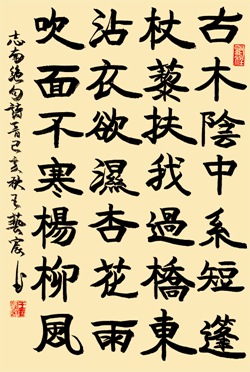 古木陰中系短蓬
杖藜扶我過橋東
沾衣欲濕杏花雨
吹面不寒楊柳風
志南絕句己亥秋